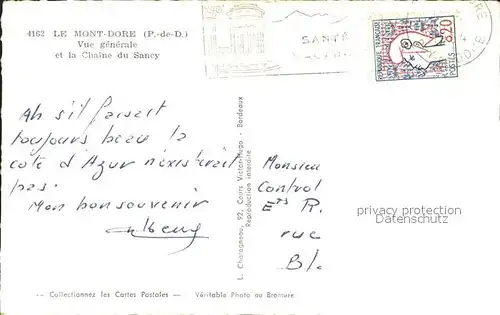 4162 LE MONT-DORE (P.-de-D.)
Vue générale
et la Chaîne du Sancy
SANTÉ
REPUBLIQUE FRANÇAISE
0,20
POSTES
Ah s'il faisait
toujours beau la
côte d'Azur n'existerait
pas.
Mon bon souvenir
L. Charageau, 92, Cours Victor-Hugo - Bordeaux
Reproduction interdite
Monsieur
Control
Ets R.
rue
Bl.
privacy protection
Datenschutz
-- Collectionnez les Cartes Postales -- Véritable Photo au Bromure